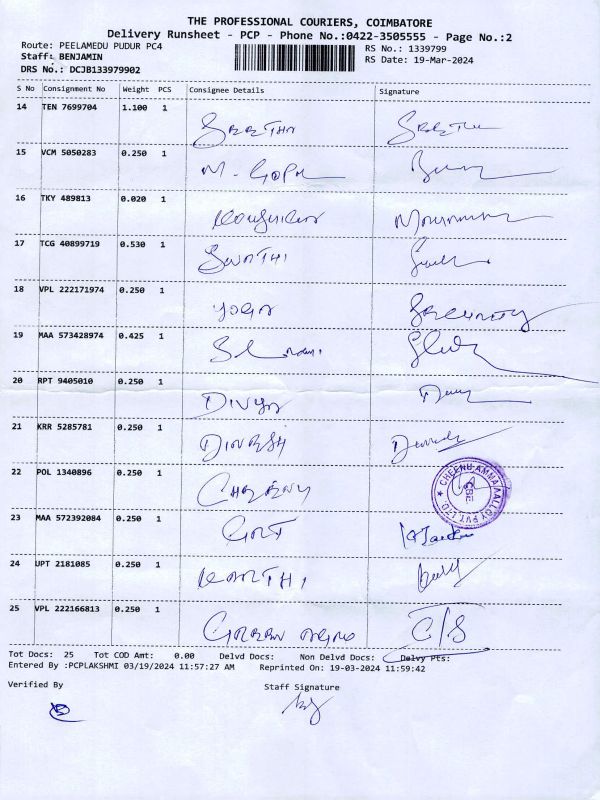 THE PROFESSIONAL COURIERS, COIMBATORE
Delivery Runsheet - PCP - Phone No.:0422-3505555 - Page No.:2
Route: PEELAMEDU PUDUR PC4 RS No.: 1339799
Staff: BENJAMIN RS Date: 19-Mar-2024
DRS No.: DCJB133979902
S No Consignment No Weight PCS Consignee Details Signature
14 TEN 7699704 1.100 1
15 VCM 5050283 0.250 1
M. GOPAL
16 TKY 489813 0.020 1
17 TCG 40899719 0.530 1
SWATHI
18 VPL 222171974 0.250 1
YOGA SECURITY
19 MAA 573428974 0.425 1
20 RPT 9405010 0.250 1
DIVYA
21 KRR 5285781 0.250 1
DINESH
22 POL 1340896 0.250 1
CHEENU
CHEENU AMMA ALLOY PVT. LTD. CBE.
23 MAA 572392084 0.250 1
24 UPT 2181085 0.250 1
KARTHI
25 VPL 222166813 0.250 1
C/S
Tot Docs: 25 Tot COD Amt: 0.00 Delvd Docs: Non Delvd Docs: Delvy Pts:
Entered By :PCPLAKSHMI 03/19/2024 11:57:27 AM Reprinted On: 19-03-2024 11:59:42
Verified By Staff Signature